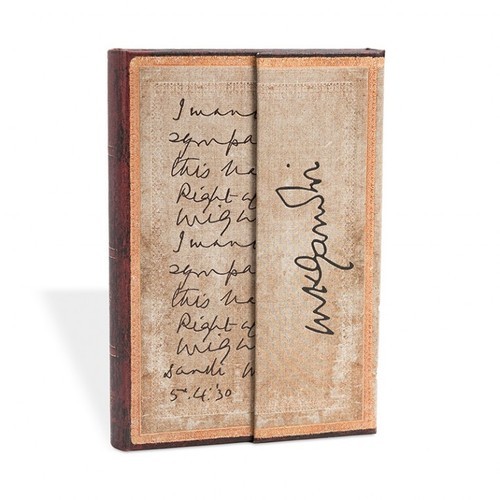 I wan
sympa
this ba
Right of
might
I wan
sympa
this ba
Right of
might
Sandi M
5.4.'30
MKGandhi